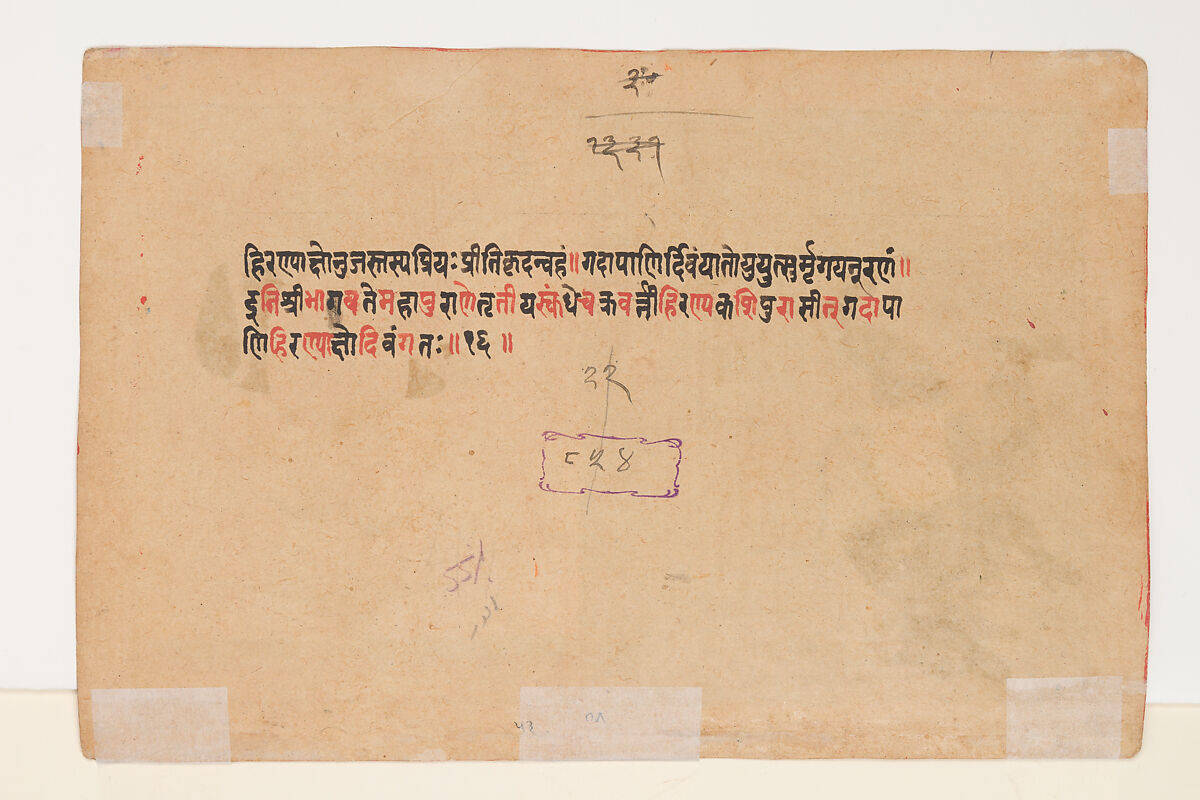 हिरण्याक्षोनुजस्तस्य प्रियः प्रीतिकृदन्वहं॥ गदापाणिर्दिवंयातोयुयुत्सुर्मृगयन्रणं॥
इतिश्रीभागवतेमहापुराणेतृतीयस्कंधे हिरण्यकशिपुरासीत्गदापा
णिहिरण्याक्षोदिवंगतः॥१६॥
२२
८५४